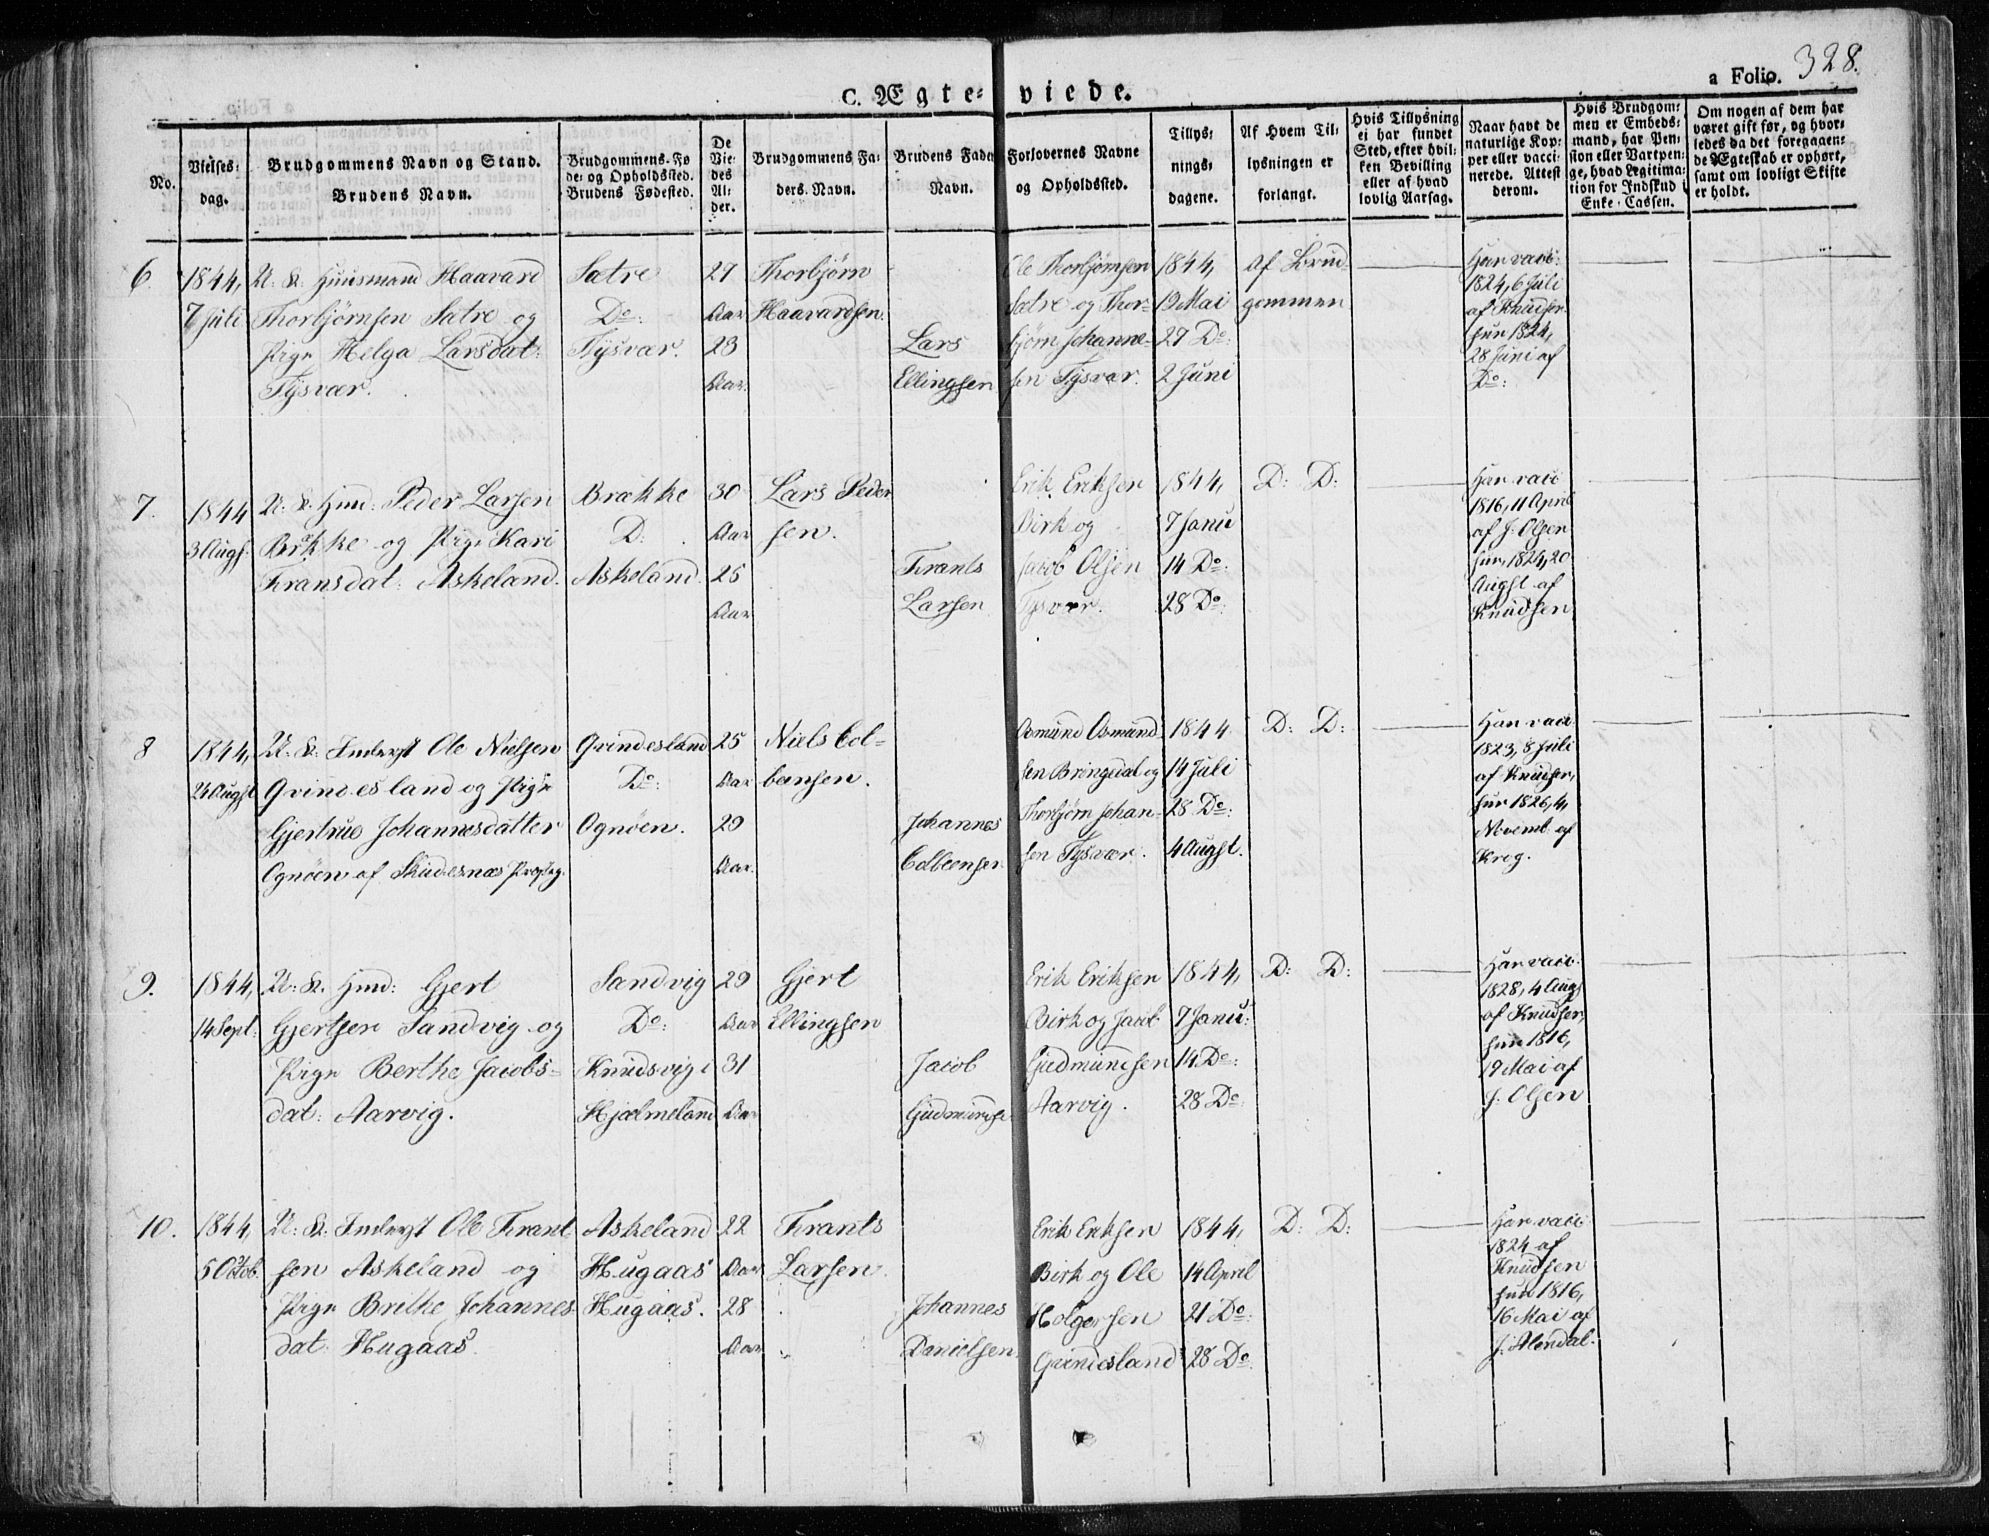 328.
a Folio.
C. Ægte-viede.
No.
Vielses-
dag.
Brudgommens Navn og Stand.
Brudens Navn.
Brudgommens Fø
de- og Opholdssted.
Brudens Fødested.
De
Vie-
des
Al-
der.
Brudgommens Fa-
ders Navn.
Brudens Faders
Navn.
Forlovernes Navne
og Opholdssted.
Tillys-
nings-
dagene.
Af Hvem Til-
lysningen er
forlangt.
Hvis Tillysning
ei har fundet
Sted, efter hvil-
ken Bevilling
eller af hvad
lovlig Aarsag.
Naar havt de
naturlige Kop-
per eller vacci-
nerede. Attest
derom.
Hvis Brudgom-
men er Embeds-
mand, har Pen-
sion eller Vartpen-
ge, hvad Legitima-
tion for Indskud i
Enke-Cassen.
Om nogen af dem har
været gift før, og hvor-
ledes da det foregaaen-
de Ægteskab er ophørt,
samt om lovligt Skifte
er holdt.
6
1844,
7 Juli
U. K. Huusmand Haavard
Thorbjørnsen Sætre og
Pige Helga Larsdat:
Tysvær.
Sætre
Do:
Tysvær.
27
Aar
23
Aar
Thorbjørn
Haavardsen.
Lars
Ellingsen
Ole Thorbjørnsen
Sætre og Thor-
bjørn Johanne-
sen Tysvær.
1844,
19 Mai
27 Do:
2 Juni
af Brud-
gommen
Han vacc:
1824, 6 Juli
af Knudsen
hun 1824,
28 Juni af
Do:
7.
1844
3 Augs:
U. K. Hmd: Peder Larsen
Brække og Pige Kari
Fransdat: Askeland.
Brække
D:
Askeland
30
Aar
25
Aar
Lars Peder
sen.
Frants
Larsen
Erik Eriksen
Birk og
Jacob Olsen
Tysvær.
1844,
7 Janu
14 Do:
28 Do:
D: D:
Han vacc
1816, 11 April
af J. Olsen
hun, 1824, 20
Augst af
Knudsen
8
1844,
24 Augst
U. K. Inderst Ole Nielsen
Qvindesland og Pige
Gjertrud Johannesdatter
Ognøen af Skudesnæs Præstg.
Qvindesland
Do:
Ognøen.
25
Aar
29
Aar.
Niels Col-
bensen.
Johannes
Colbensen
Osmund Osmund
sen Bringedal og
Thorbjørn Johan-
sen Tysvær.
1844
14 Juli
28 Do:
4 Augst.
D: D:
Han vacc
1823, 8 Juli
af Knudsen,
hun 1826, 4
Novemb af
Krog.
9.
1844,
14 Sept:
U: K. Hmd: Gjert
Gjertsen Sandvig og
Pige Berthe Jacobs-
dat: Aarvig.
Sandvig
Do:
Knudsvig i
Hjælmeland
29
Aar
31
Aar
Gjert
Ellingsen
Jacob
Gudmundse
Erik Eriksen
Birk og Jacob
Gudmundsen
Aarvig.
1844,
7 Janu:
14 Do:
28 Do:
D: D:
Han vacc.
1828, 4 Augs
af Knudsen,
hun 1816,
19 Mai af
J. Olsen
10.
1844,
5 Octob.
U: K: Inderst Ole Frant
sen Askeland og
Pige Brithe Johannes
dat: Hugaas.
Askeland
Hugaas
Hugaas.
22
Aar
28
Aar
Frants
Larsen.
Johannes
Danielsen.
Erik Eriksen
Birk og Ole
Holgersen
Qvindesland
1844,
14 April
21 Do:
28 Do.
D: D:
Han vacc
1824 af
Knudsen
hun 1816,
16 Mai af